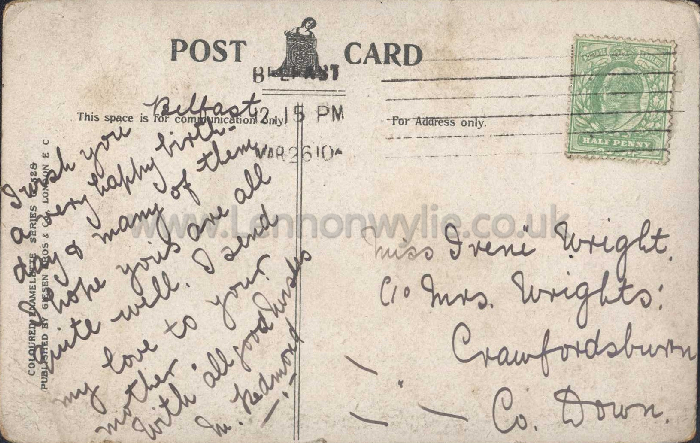 POST CARD
BELFAST
12.15 PM
MAR 26 10
This space is for communication only.
For Address only.
HALF PENNY
Belfast
I wish you
a very happy birth-
day & many of them
I hope you's are all
quite well. I send
my love to your
mother
With all good wishes
M. Redmond
Miss Irene Wright.
c/o Mrs. Wrights:
Crawfordsburn
Co. Down.
COLOURED ENAMELETTE SERIES
PUBLISHED BY GIESEN BROS & CO. LONDON E C
www.Lennonwylie.co.uk